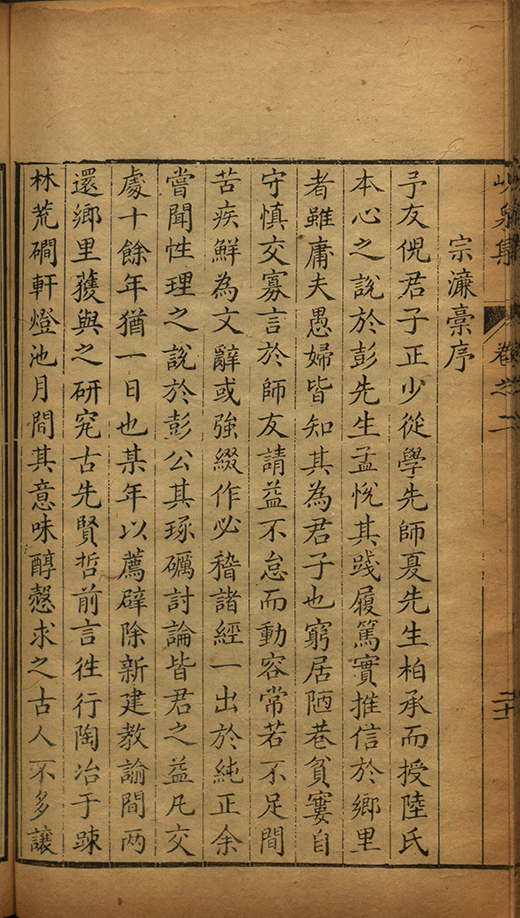 峴泉集 卷之二
宗濂稾序
予友倪君子正少從學先師夏先生柏承而授陸氏
本心之說於彭先生孟悅其踐履篤實推信於鄉里
者雖庸夫愚婦皆知其為君子也窮居陋巷貧窶自
守慎交寡言於師友請益不怠而動容常若不足間
苦疾鮮為文辭或強綴作必稽諸經一出於純正余
嘗聞性理之說於彭公其琢礪討論皆君之益凡交
處十餘年猶一日也某年以薦辟除新建教諭間兩
還鄉里獲與之研究古先賢哲前言徃行陶冶于踈
林荒磵軒燈池月間其意味醇慤求之古人不多讓